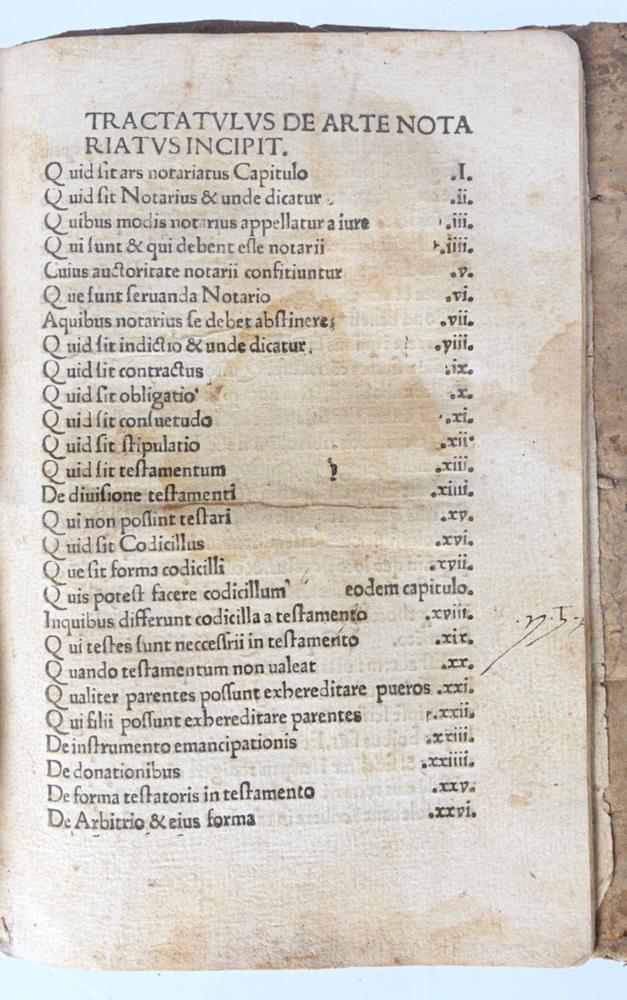 TRACTATVLVS DE ARTE NOTA
RIATVS INCIPIT.
Quid sit ars notariatus Capitulo .I.
Quid sit Notarius & unde dicatur .ii.
Quibus modis notarius appellatur a iure .iii.
Qui sunt & qui debent esse notarii .iiii.
Cuius auctoritate notarii confitiuntur .v.
Que sunt seruanda Notario .vi.
Aquibus notarius se debet abstinere .vii.
Quid sit indictio & unde dicatur. .viii.
Quid sit contractus .ix.
Quid sit obligatio .x.
Quid sit consuetudo .xi.
Quid sit stipulatio .xii.
Quid sit testamentum .xiii.
De diuisione testamenti .xiiii.
Qui non possint testari .xv.
Quid sit Codicillus .xvi.
Que sit forma codicilli .xvii.
Quis potest facere codicillum eodem capitulo.
Inquibus differunt codicilla a testamento .xviii.
Qui testes sunt neccessrii in testamento .xix.
Quando testamentum non ualeat .xx.
Qualiter parentes possunt exhereditare pueros .xxi.
Qui filii possunt exhereditare parentes .xxii.
De instrumento emancipationis .xxiii.
De donationibus .xxiiii.
De forma testatoris in testamento .xxv.
De Arbitrio & eius forma .xxvi.